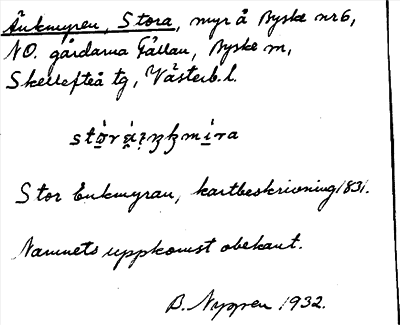 Änkmyren, Stora, myr å Byske nr 6,
NO. gårdarna Fällan, Byske sn,
Skellefteå tg, Västerb. l.
Stor Enkmyran, kartbeskrivning 1831.
Namnets uppkomst obekant.
B. Nygren 1932.